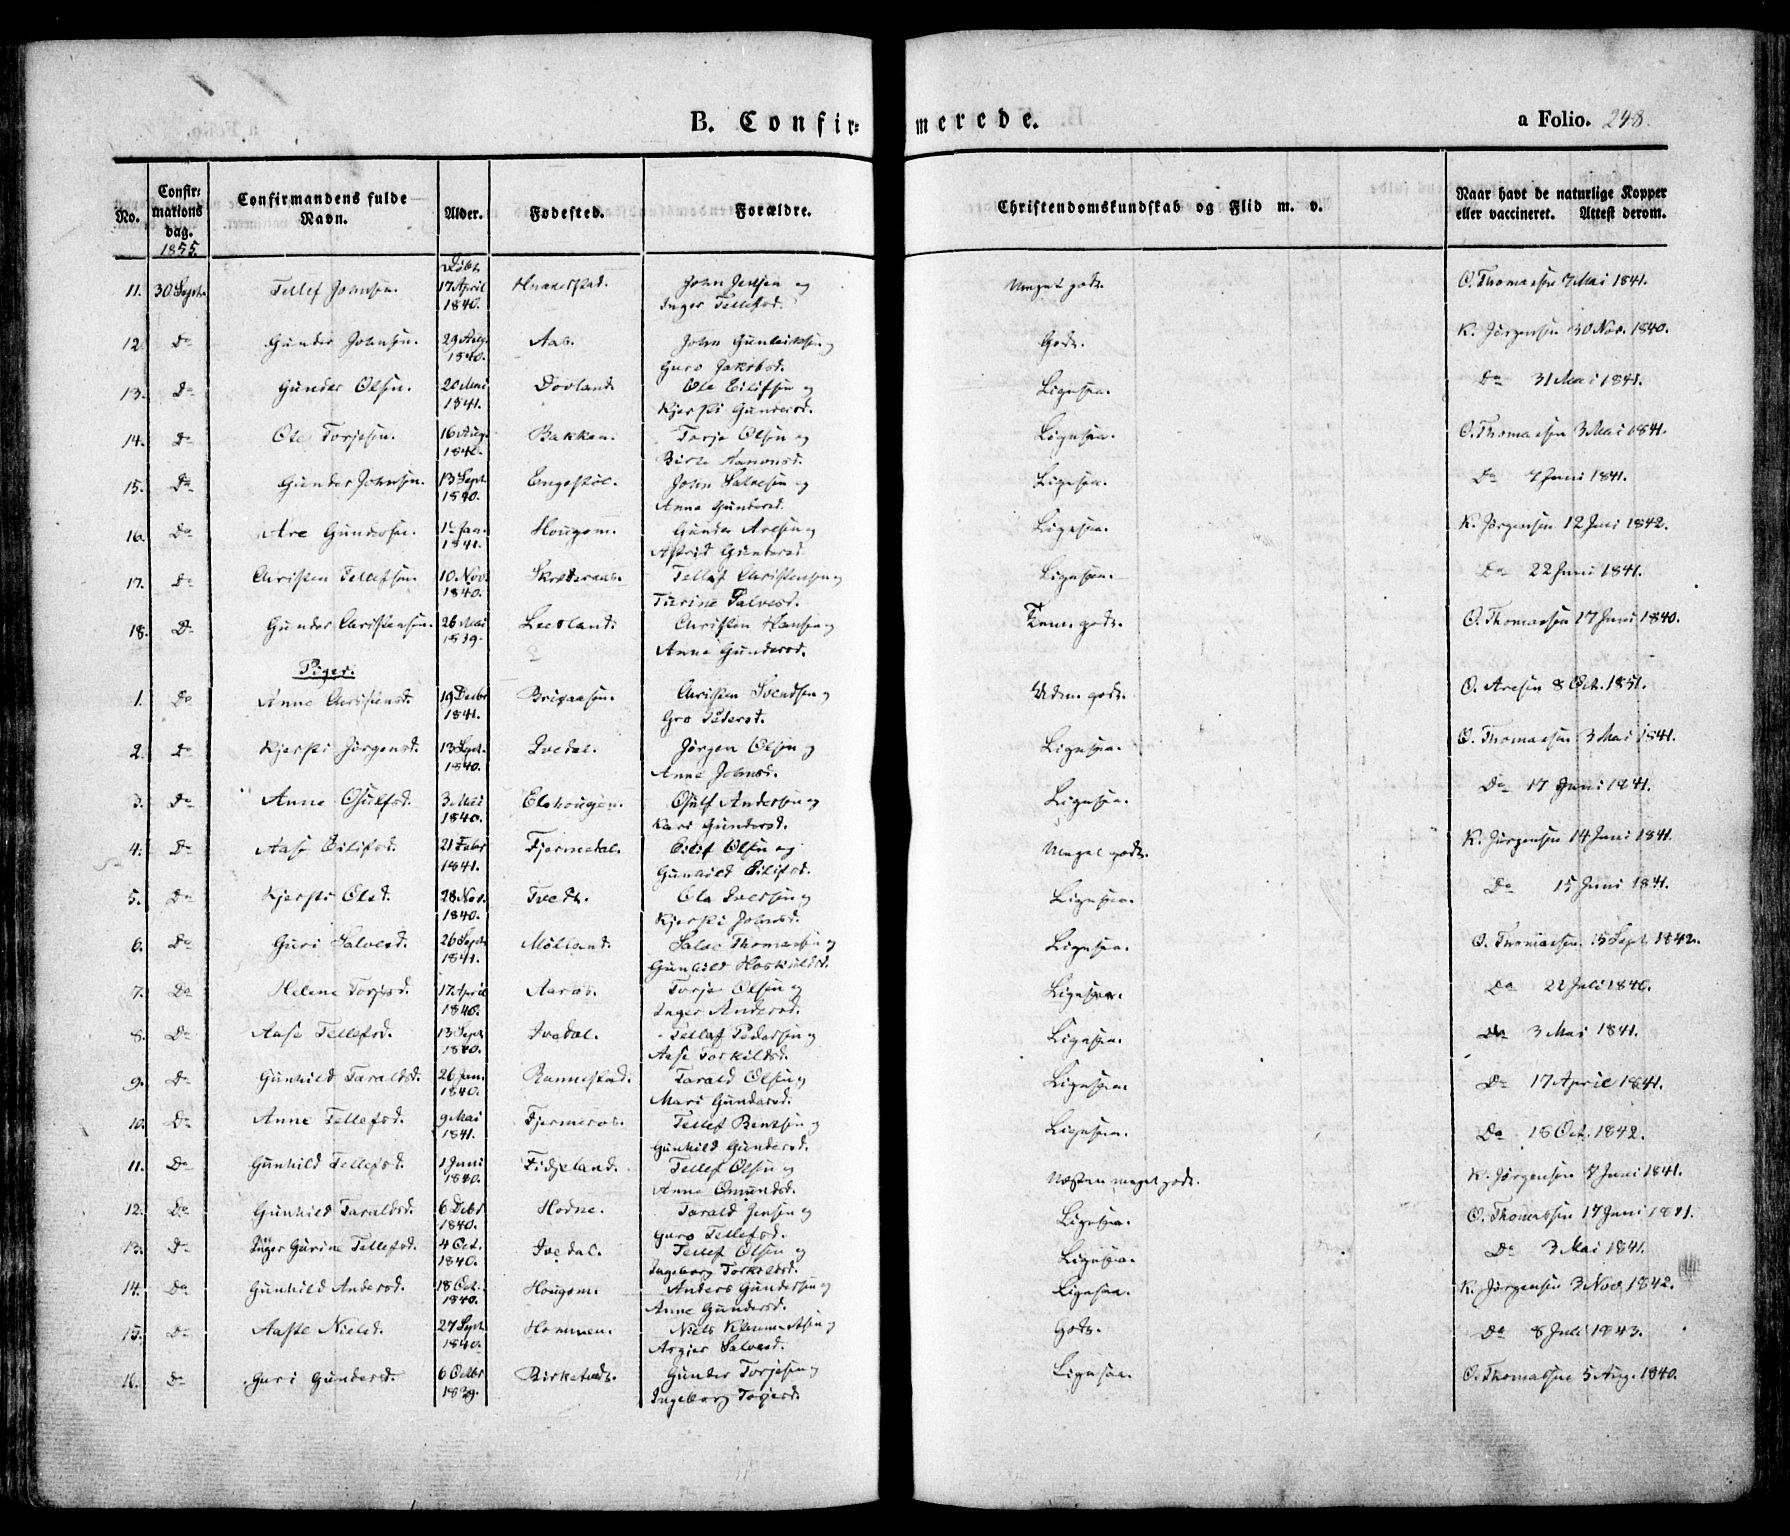 B. Confirmerede.
a Folio. 248.
No. Confirmations dag. Confirmandens fulde Navn. Alder. Fødested. Forældre. Christendomskundskab og Flid m. v. Naar havt de naturlige Kopper eller vaccineret. Attest derom.
1855. Døbt
11. 30 Sept. Tellef Johnsen. 17 April 1840. John Jensen og Meget godt. O. Thomassen 7 Mai 1841.
Inger Tellefsd.
12. Do Gunder Johnsen. 29 Aug. 1840. Aas. John Gunleiksen og Godt. K. Jørgensen 30 Nov. 1840.
Guro Jakobsd.
13. Do Gunder Olsen. 20 Mai 1841. Dovland. Ole Eilifsen og Ligesaa. Do 31 Mai 1841.
Kjersti Gundersd.
14. Do Ole Torjesen. 16 Aug. 1840. Bakken. Torje Olsen og Ligesaa. O. Thomassen 3 Mai 1841.
Birte Aanonsd.
15. Do Gunder Johnsen. 13 Sept. 1840. Engestøl. John Salvesen og Ligesaa. Do 7 Juni 1841.
Anne Gundersd.
16. Do Are Gundersen. Jan. 1841. Hougom. Gunder Aresen og Ligesaa. K. Jørgensen 12 Juni 1842.
Astrid Gundersd.
17. Do Christen Tellefsen. 10 Nov. 1840. Skrederaas. Tellef Christensen og Ligesaa. Do 22 Juni 1841.
Turine Salvesd.
18. Do Gunder Christensen. 26 Mai 1839. Christen Hansen og godt. O. Thomassen 17 Juni 1840.
Anne Gundersd.
Piger.
1. Do Anne Christensd. 19 Decbr 1841. Brigaasen. Christen Svendsen og godt. O. Aresen 8 Oct. 1851.
Gro Pedersd.
2. Do Kjersti Jørgensd. 13 Sept. 1840. Ivedal. Jørgen Olsen og Ligesaa. O. Thomassen 3 Mai 1841.
Anne Johnsd.
3. Do Anne Osulfsd. 3 Mai 1840. Elshougen. Osulf Andersen og Ligesaa. Do 17 Juni 1841.
Kari Gundersd.
4. Do Aase Eilifsd. 21 Febr 1841. Fjermedal. Eilif Olsen og Meget godt. K. Jørgensen 14 Juni 1841.
Gunhild Eilifsd.
5. Do Kjersti Olsd. 28 Nov. 1840. Tvedt. Ole Iversen og Ligesaa. Do 15 Juni 1841.
Kjersti Johnsd.
6. Do Guri Salvesd. 26 Sept. 1841. Mølland. Salve Thomassen og Ligesaa. O. Thomassen 15 Sept. 1842.
Gunhild Hoskuldsd.
7. Do Helene Torjesd. 17 April 1840. Aaros. Torje Olsen og Ligesaa. Do 22 Juli 1840.
Inger Andersd.
8. Do Aase Tellefsd. 13 Sept. 1840. Ivedal. Tellef Pedersen og Ligesaa. Do 3 Mai 1841.
Aase Torkildsd.
9. Do Gunhild Taraldsd. 26 Jan. 1840. Rannestad. Tarald Olsen og Ligesaa. Do 17 April 1841.
Mari Gundersd.
10. Do Anne Tellefsd. 9 Mai 1841. Fjermeros. Tellef Bentsen og Ligesaa. Do 18 Oct. 1842.
Gunhild Gundersd.
11. Do Gunhild Tellefsd. 1 Juni 1840. Fidjeland. Tellef Olsen og Næsten meget godt. K. Jørgensen 7 Juni 1841.
Anne Omundsd.
12. Do Gunhild Taraldsd. 6 Decbr 1840. Hodne. Tarald Jensen og Ligesaa. O. Thomassen 17 Juni 1841.
Guro Tellefsd.
13. Do Inger Gurine Tellefsd. 4 Oct. 1840. Ivedal. Tellef Olsen og Ligesaa. Do 3 Mai 1841.
Ingeborg Torkildsd.
14. Do Gunhild Andersd. 18 Oct. 1840. Hougom. Anders Gundersen og Ligesaa. K. Jørgensen 3 Nov. 1842.
Anne Gundersd.
15. Do Aaste Nielsd. 27 Sept. 1840. Hommen. Niels Klemmetsen og Godt. Do 8 Juli 1843.
Asgjer Salvesd.
16. Do Guri Gundersd. 6 Octbr 1839. Birketveds. Gunder Torjesen og Ligesaa. O. Thomassen 5 Aug. 1840.
Ingeborg Torjesd.